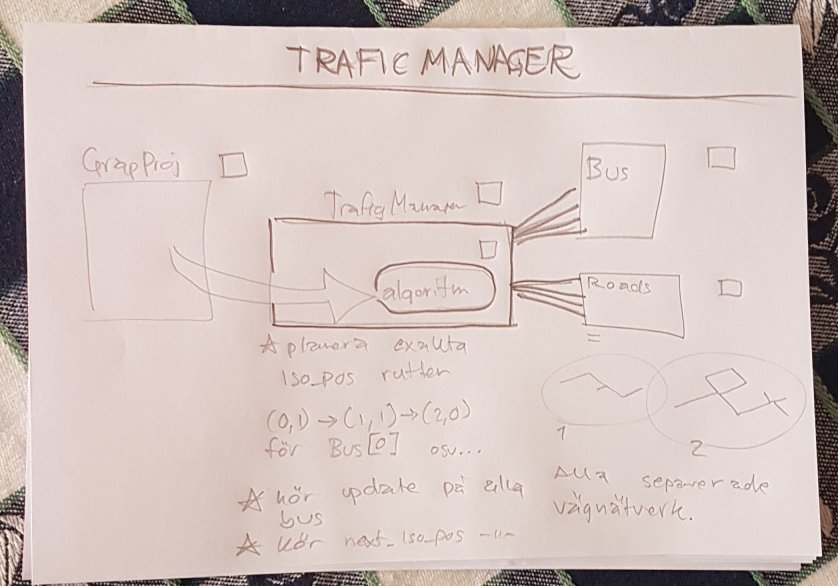 TRAFIC MANAGER
GrapProj
Trafig Manager
Bus
algoritm
Roads
☆ planera exakta
Iso_pos rutten
(0,1) → (1,1) → (2,0)
för Bus[0] osv...
☆ kör update på alla
bus
☆ kör next_Iso_pos -||-
1
2
Alla separerade
vägnätverk.